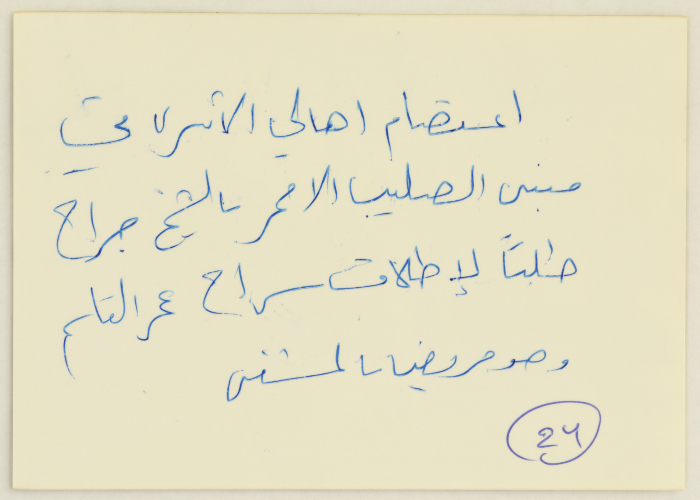 اعتصام اهالي الأسرى في
مبنى الصليب الاحمر بالشيخ جراح
طلبًا لإطلاق سراح عمر القاسم
وهو مريض بالمستشفى
24